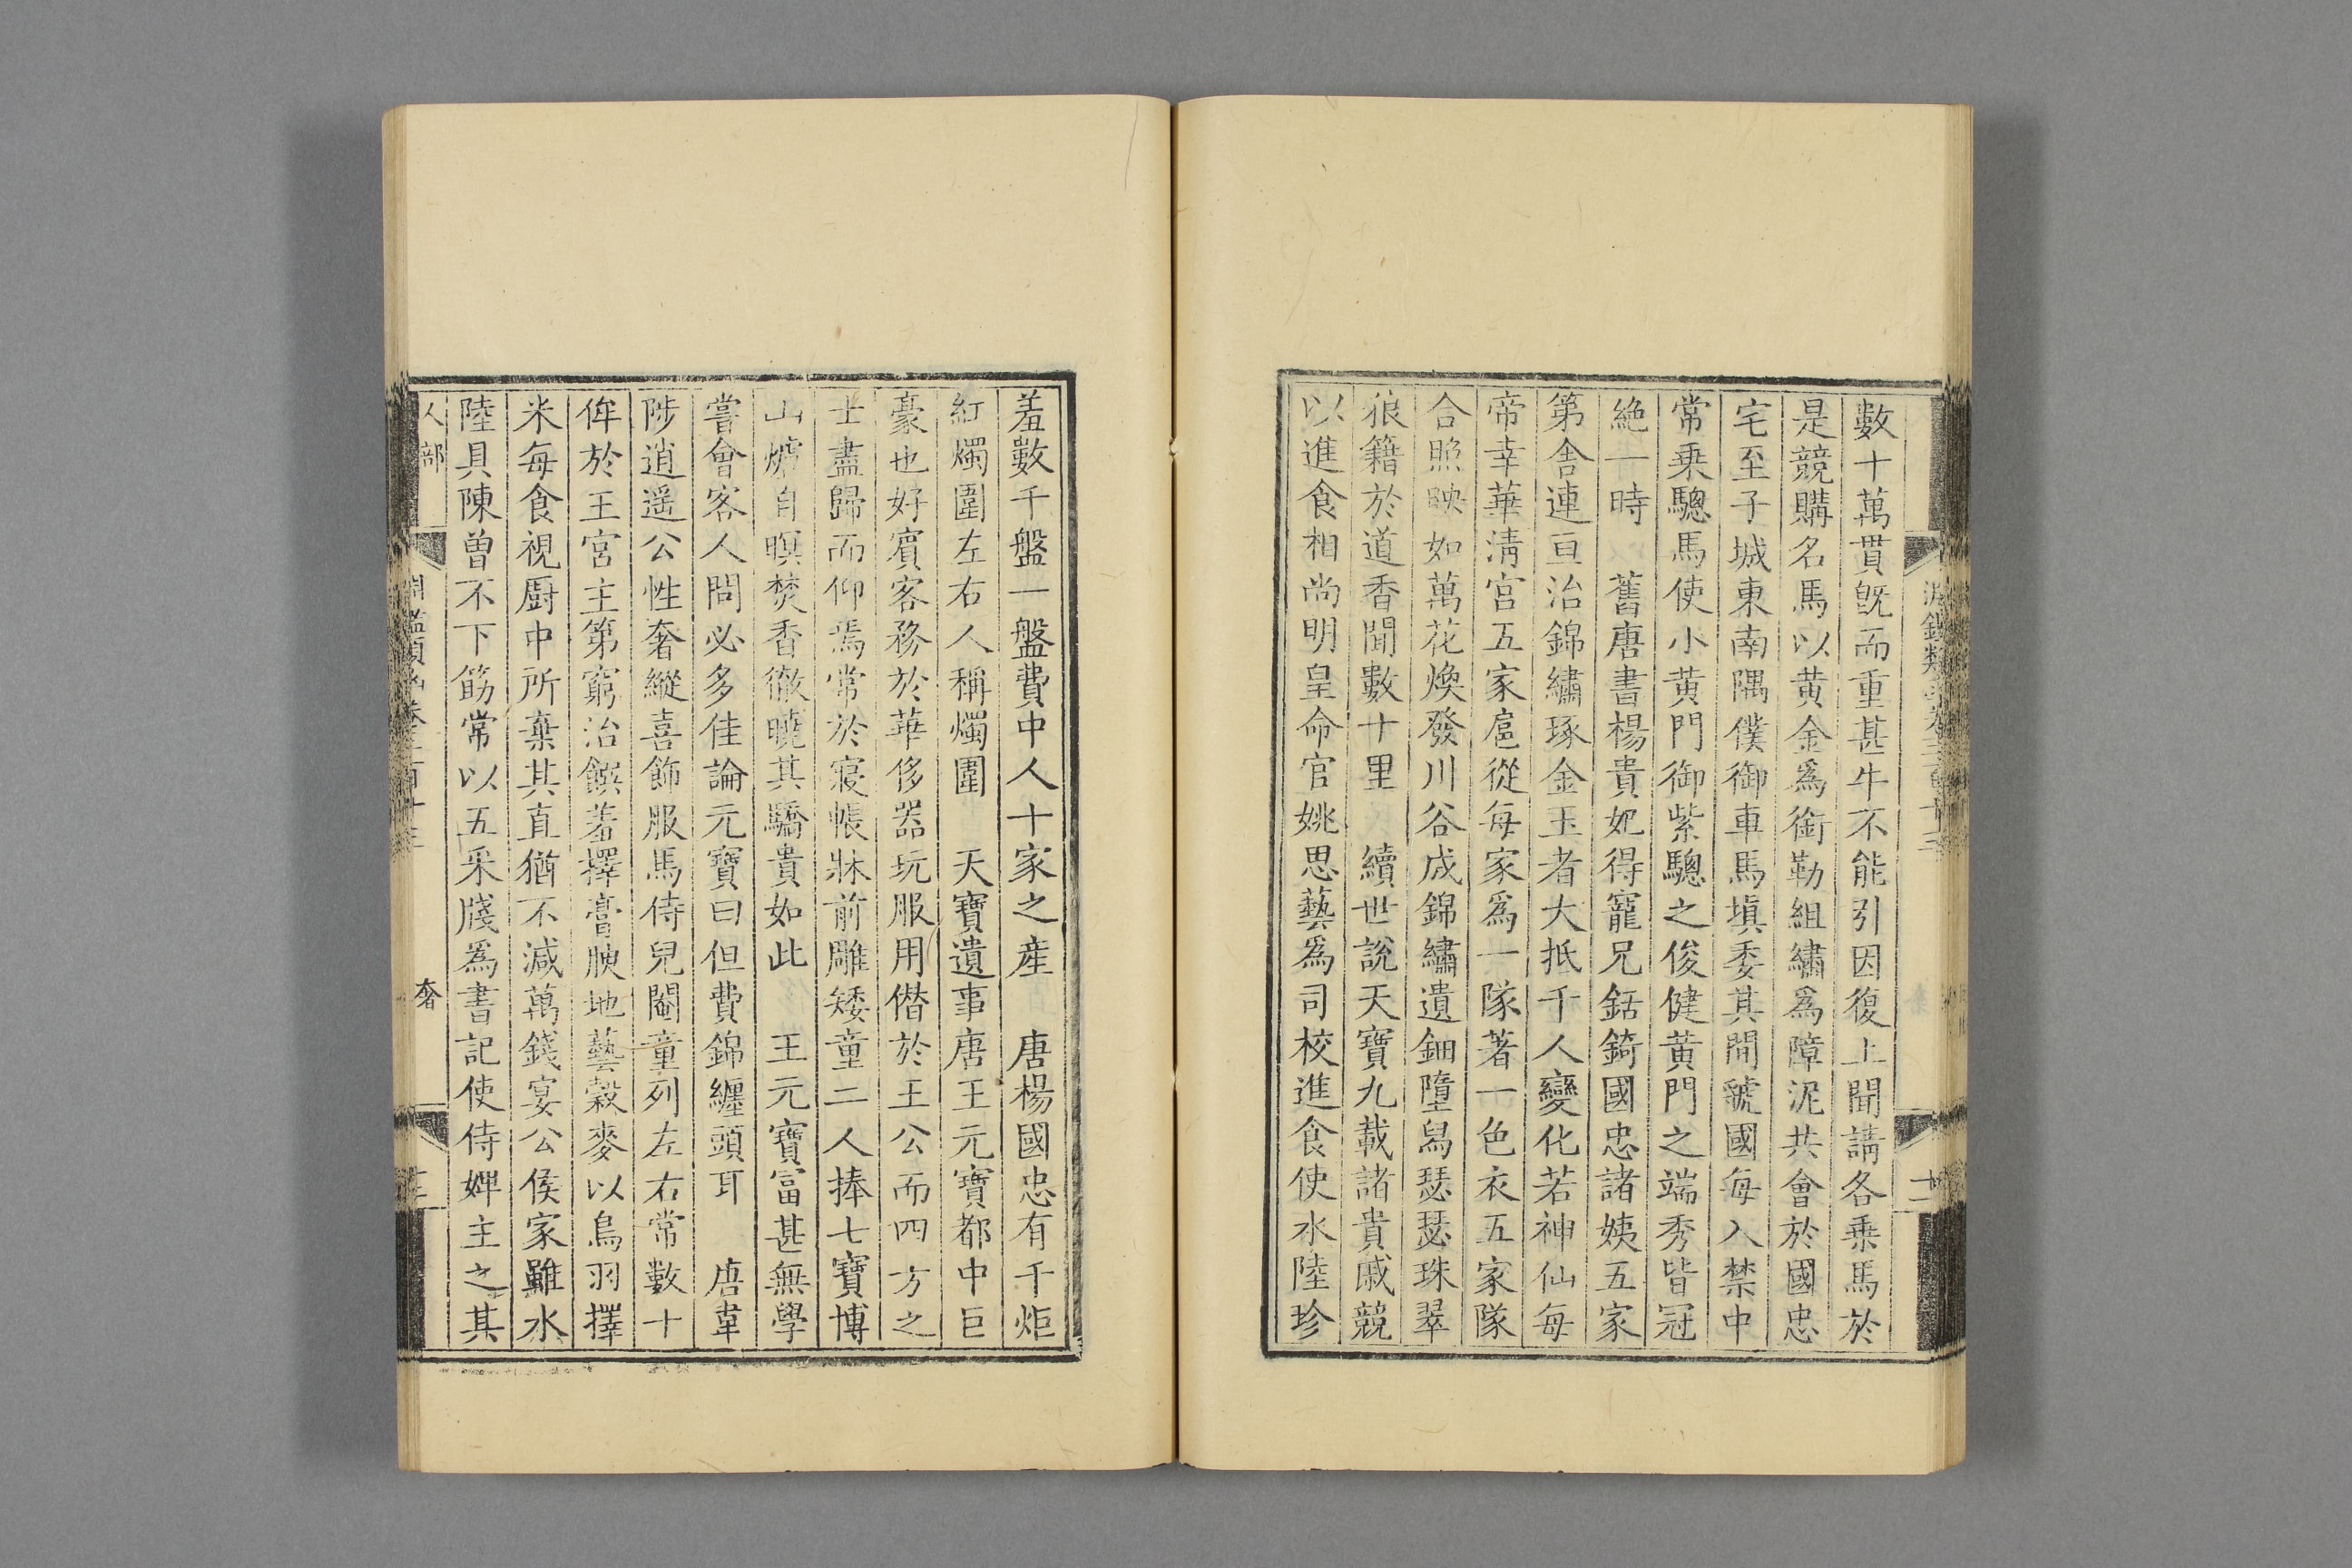 數十萬貫旣而重甚牛不能引因復上聞請各乗馬於
是競購名馬以黄金爲銜勒組繡爲障泥共會於國忠
宅至子城東南隅僕御車馬塡委其間虢國每入禁中
常乗驄馬使小黄門御紫驄之俊健黄門之端秀皆冠
絶一時　舊唐書楊貴妃得寵兄銛錡國忠諸姨五家
第舍連亘治錦繡琢金玉者大抵千人變化若神仙每
帝幸華淸宫五家扈從每家爲一隊著一色衣五家隊
合照映如萬花煥發川谷成錦繡遺鈿墮舄瑟瑟珠翠
狼籍於道香聞數十里　續世說天寶九載諸貴戚競
以進食相尚明皇命官姚思藝爲司校進食使水陸珍
羞數千盤一盤費中人十家之産　唐楊國忠有千炬
紅燭圍左右人稱燭圍　天寶遺事唐王元寶都中巨
豪也好賓客務於華侈器玩服用僭於王公而四方之
士盡歸而仰焉常於寢帳牀前雕矮童二人捧七寶博
山爐自暝焚香徹曉其驕貴如此　王元寶富甚無學
嘗會客人問必多佳論元寶曰但費錦纏頭耳　唐韋
陟逍遥公性奢縱喜飾服馬侍兒閹童列左右常數十
侔於王宮主第窮治饌羞擇膏腴地藝穀麥以鳥羽擇
米每食視厨中所棄其直猶不減萬錢宴公侯家雖水
陸具陳曾不下筯常以五釆牋爲書記使侍婢主之其
人部
奢